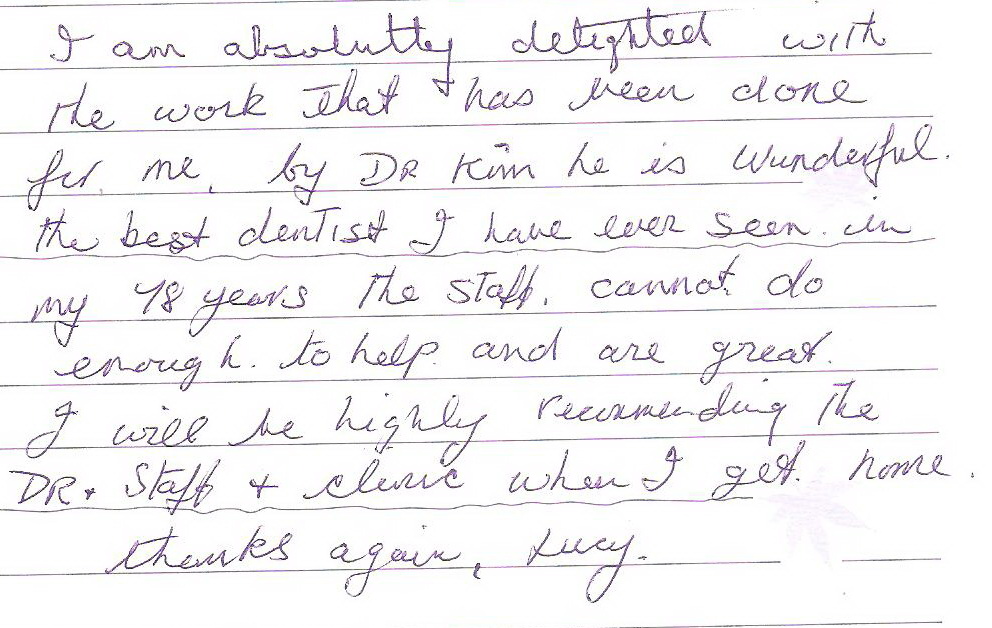 I am absolutely delighted with
the work that has been done
for me, by DR Kim he is wunderful.
the best dentist I have ever seen. in
my 78 years the staff. cannot do
enough. to help. and are great.
I will be highly recommending the
DR. Staff + clinic when I get home.
thanks again, Lucy.